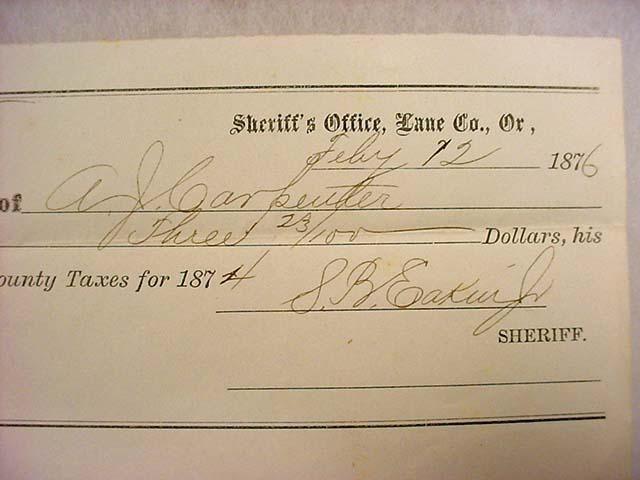 Sheriff's Office, Lane Co., Or,
Feby 12 1876
of A. J. Carpenter
Three 23/100 Dollars, his
ounty Taxes for 1874
S. B. Eakin Jr
SHERIFF.